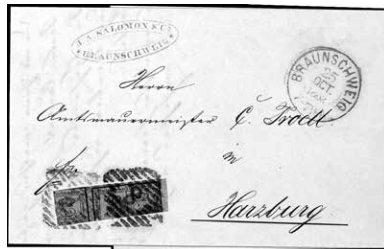 J. A. SALOMON & Co
BRAUNSCHWEIG
BRAUNSCHWEIG
25
OCT.
Herrn
Amtsmauermeister C. Troelt
in
Harzburg.